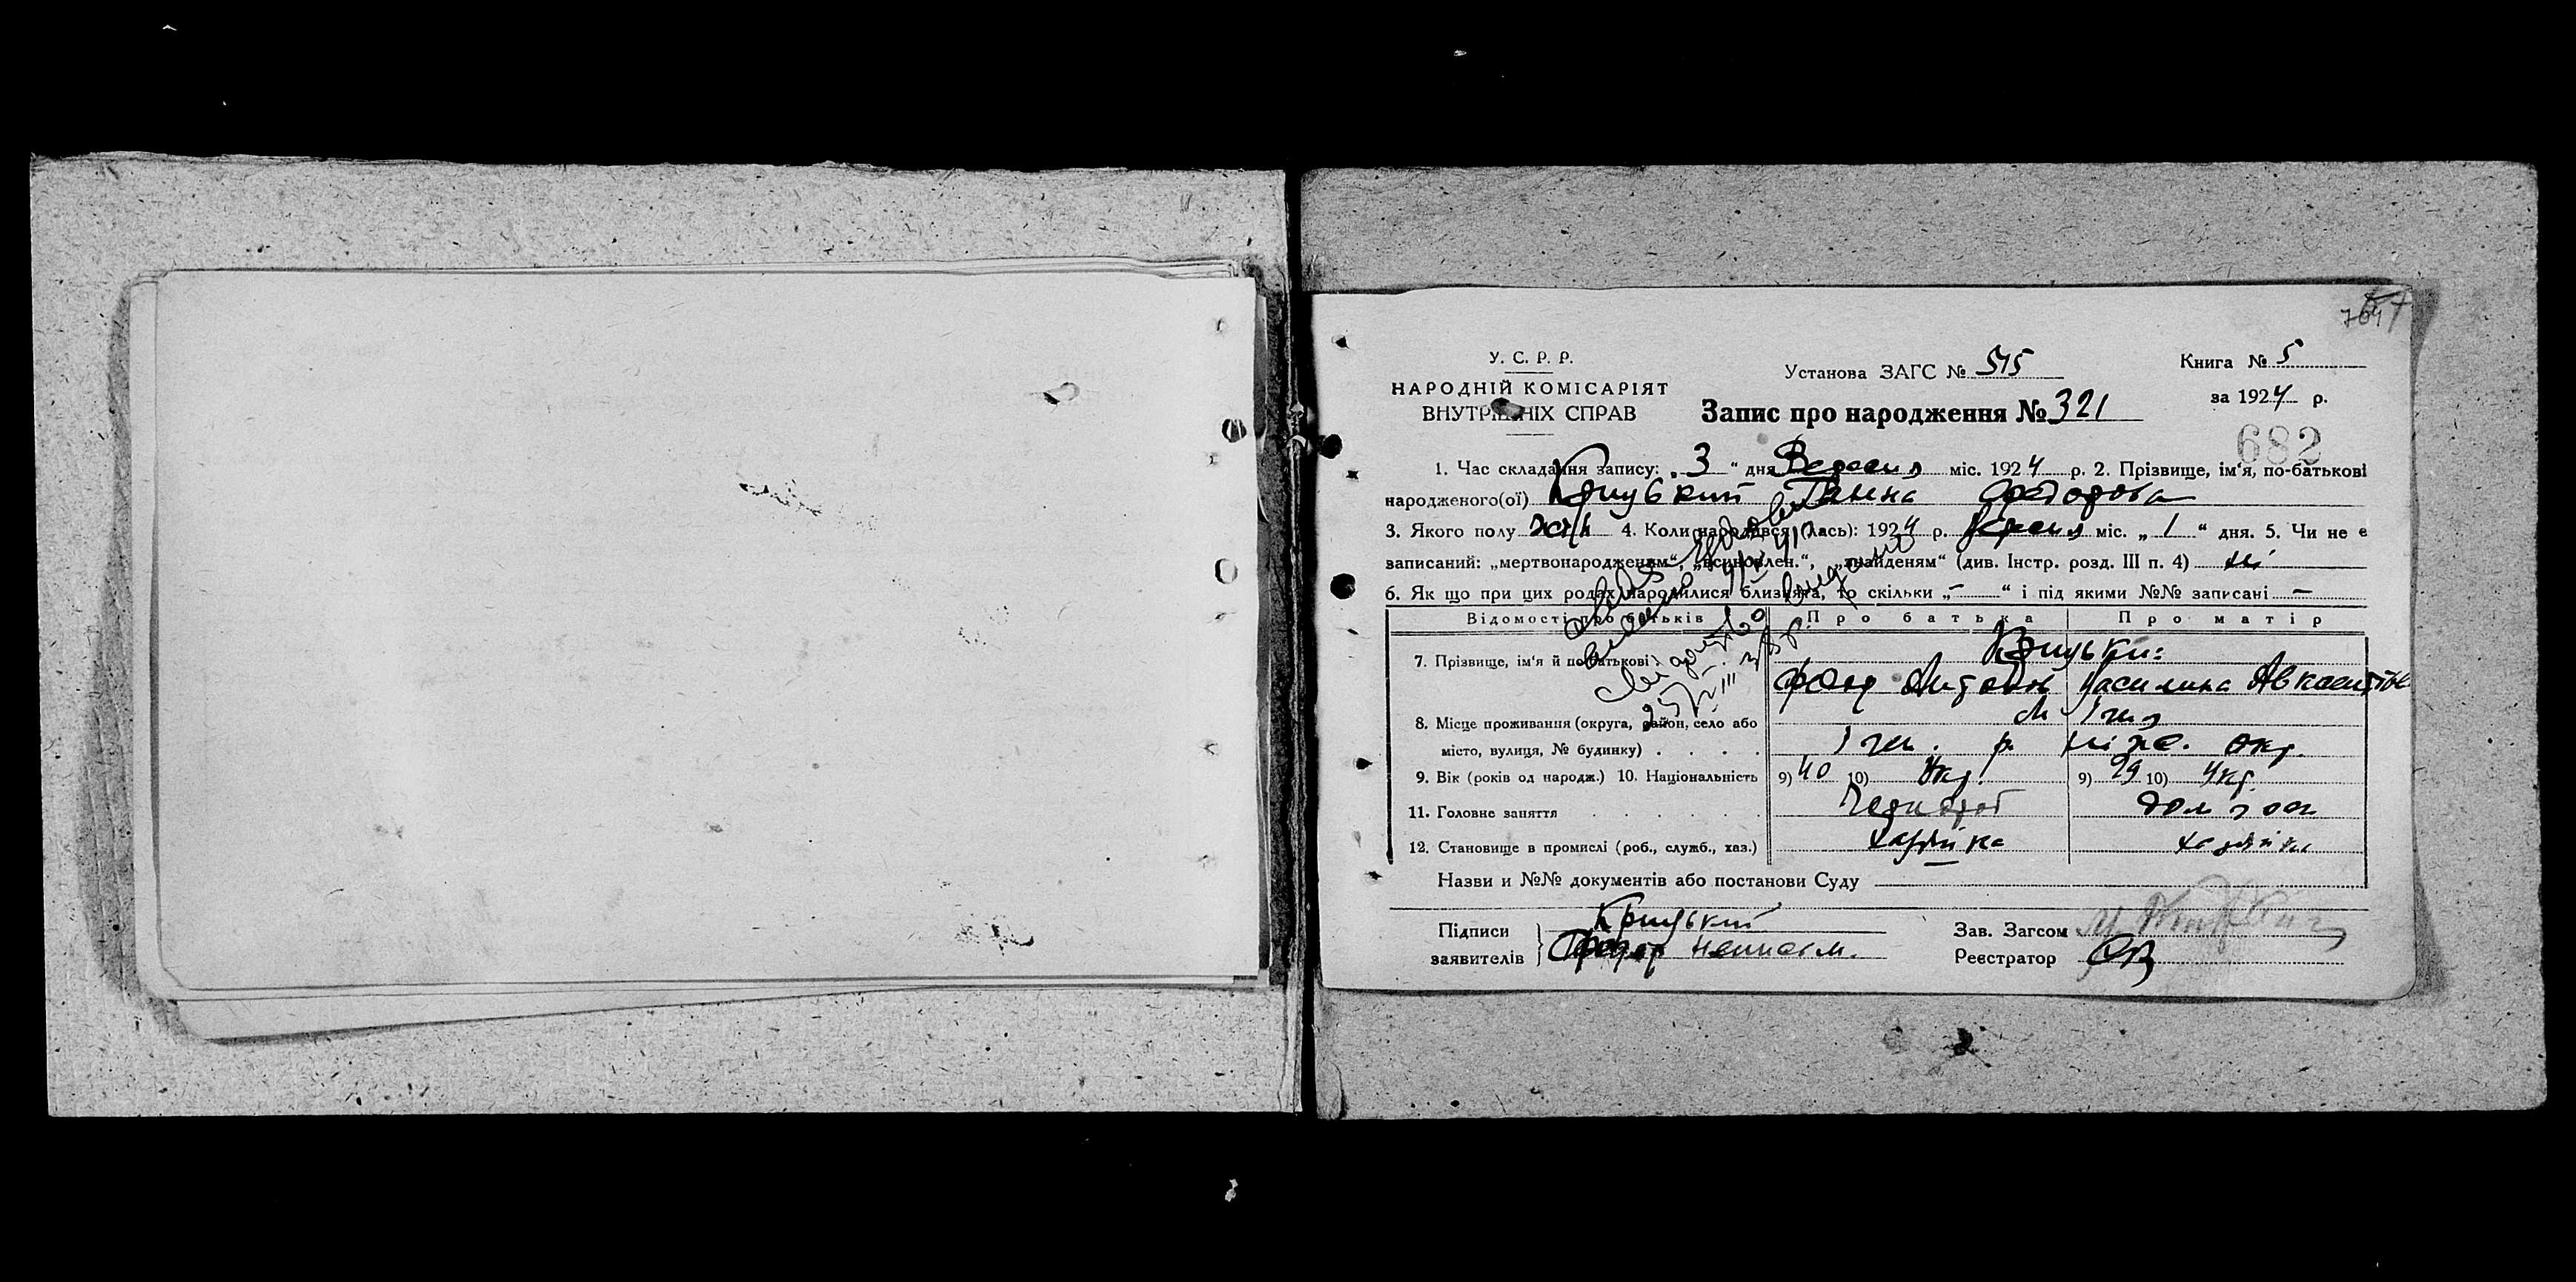 У. С. Р. Р.
НАРОДНІЙ КОМІСАРІЯТ
ВНУТРІШНІХ СПРАВ
Установа ЗАГС № 515
Запис про народження № 321
Книга № 5
за 1924 р.
682
1. Час складання запису: „ 3 “ дня Вересня міс. 1924 р. 2. Прізвище, ім‘я, по-батькові
народженого(ої) Крицький Ганна Федорова
3. Якого полу жін 4. Коли народився (лась): 1924 р. Вересня міс. „ 1 “ дня. 5. Чи не є
записаний: „мертвонародженям“, „всиновлен.“, „знайденям“ (див. Інстр. розд. III п. 4) ні
6. Як що при цих родах народилися близнята, то скільки „ — “ і під якими №№ записані —
Відомості про батьків Про батька Про матір
7. Прізвище, ім‘я й по-батькові . Крицьки:
Фед Антонов Василина Авксентіев
8. Місце проживання (округа, район, село або м Ічня
місто, вулиця, № будинку) . . . . Ічн. р. Ніже. окр.
9. Вік (років од народж.) 10. Національність 9) 40 10) Укр. 9) 29 10) Укр.
11. Головне заняття . . . . . . Хлібороб дом госп
12. Становище в промислі (роб., служб., хаз.) хазяйка хазяйка
Назви и №№ документів або постанови Суду
Підписи заявителів } Крицький
Федор неписьм.
Зав. Загсом
Реєстратор